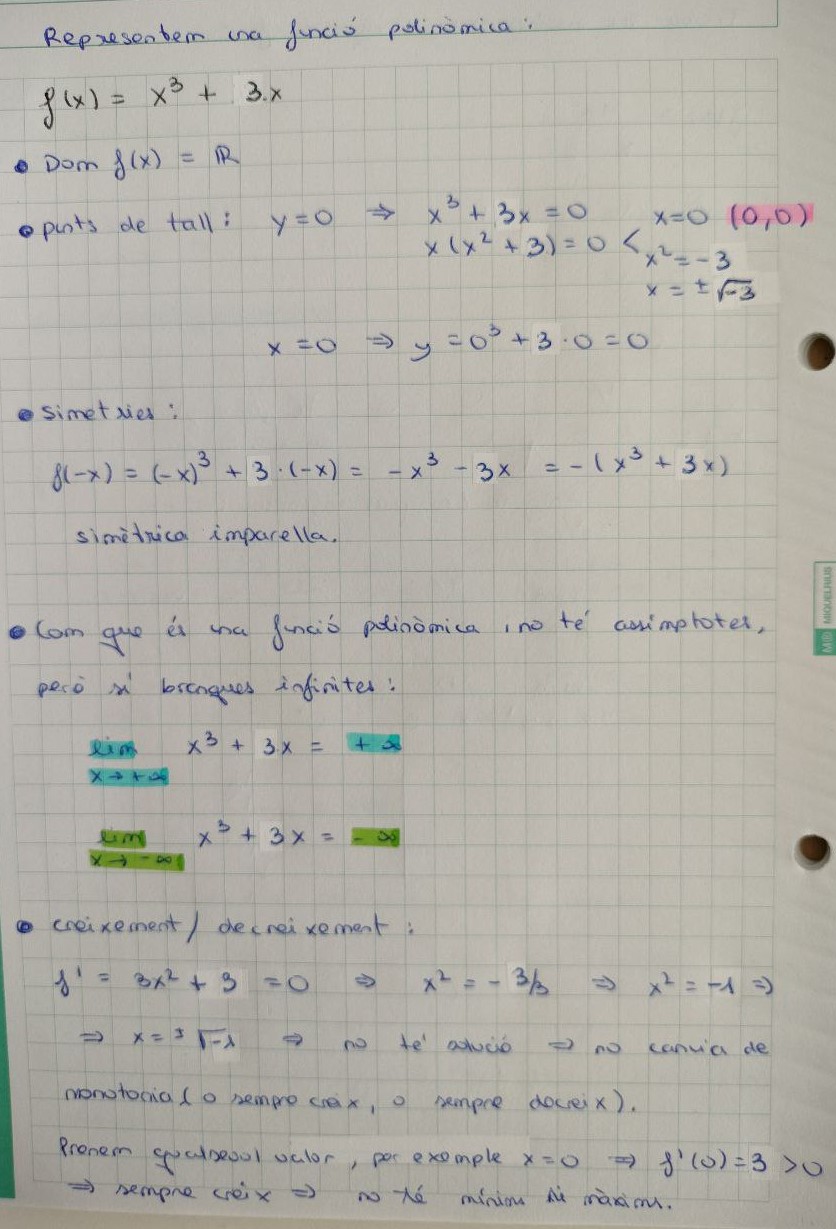 Representem una funció polinòmica:
f(x) = x³ + 3.x
• Dom f(x) = ℝ
• punts de tall: y=0 ⇒ x³ + 3x = 0 x=0 (0,0)
x(x² + 3) = 0 < x² = -3
x = ±√-3
x = 0 ⇒ y = 0³ + 3 · 0 = 0
• simetries:
f(-x) = (-x)³ + 3 · (-x) = -x³ - 3x = -(x³ + 3x)
simètrica imparella.
• Com que és una funció polinòmica, no té assimptotes,
però sí branques infinites:
lim x³ + 3x = +∞
x→+∞
lim x³ + 3x = -∞
x→-∞
• creixement/decreixement:
f' = 3x² + 3 = 0 ⇒ x² = -3/3 ⇒ x² = -1 ⇒
⇒ x = ±√-1 ⇒ no té solució ⇒ no canvia de
monotonia (o sempre creix, o sempre decreix).
Prenem qualsevol valor, per exemple x=0 ⇒ f'(0)=3 >0
⇒ sempre creix ⇒ no té mínims ni màxims.
MIQUELRIUS